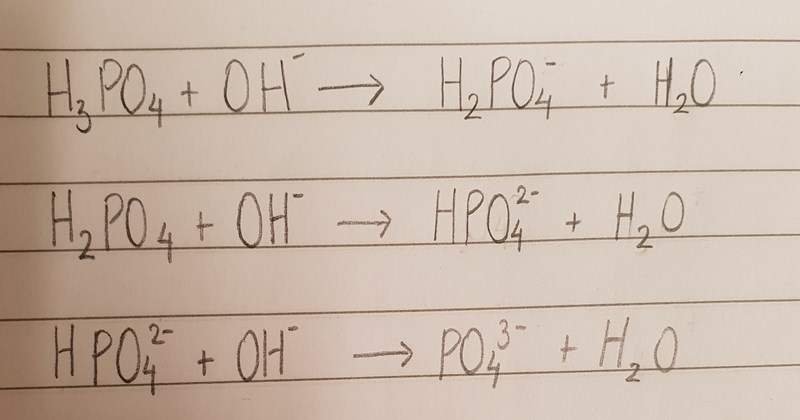 H₃PO₄ + OH⁻ → H₂PO₄⁻ + H₂O
H₂PO₄ + OH⁻ → HPO₄²⁻ + H₂O
HPO₄²⁻ + OH⁻ → PO₄³⁻ + H₂O